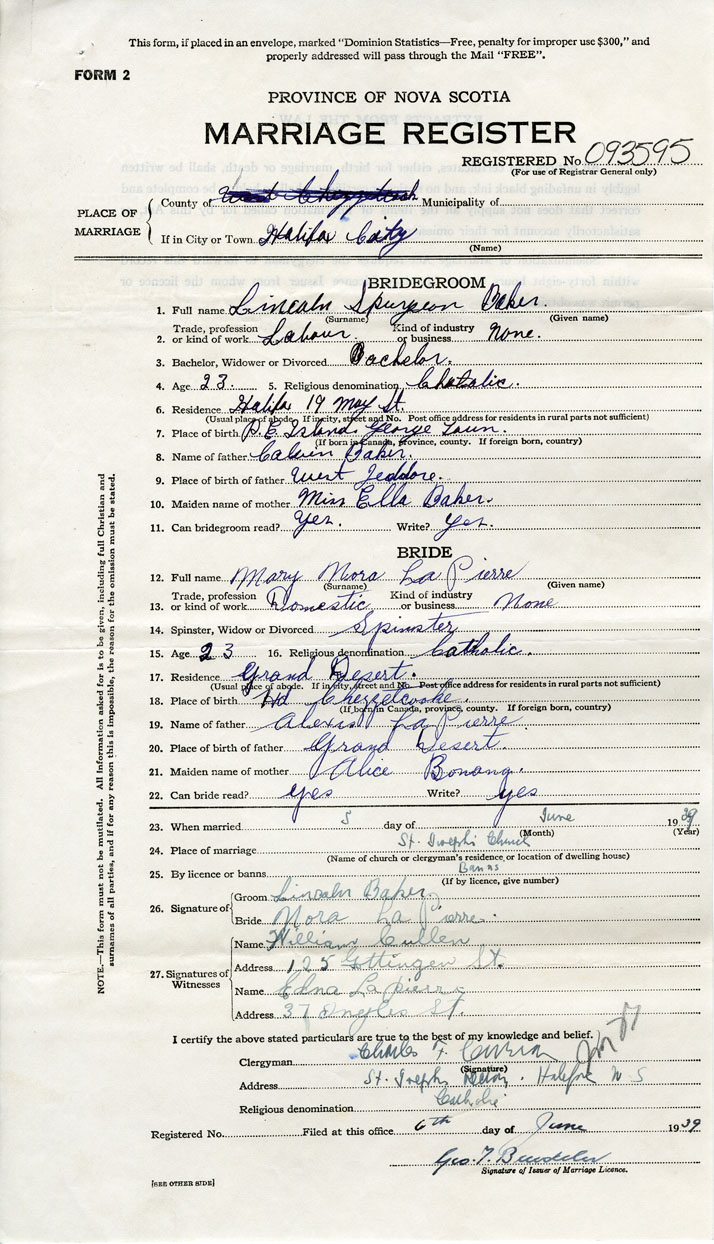 This form, if placed in an envelope, marked "Dominion Statistics—Free, penalty for improper use $300," and
properly addressed will pass through the Mail "FREE".
FORM 2
PROVINCE OF NOVA SCOTIA
MARRIAGE REGISTER
REGISTERED No. 093595
(For use of Registrar General only)
PLACE OF MARRIAGE
County of West Chezzetcook Municipality of
If in City or Town Halifax City
(Name)
BRIDEGROOM
1. Full name Lincoln Spurgeon Baker.
(Surname) (Given name)
2. Trade, profession or kind of work Labour. Kind of industry or business None.
3. Bachelor, Widower or Divorced Bachelor.
4. Age 23. 5. Religious denomination Chatalic.
6. Residence Halifa 19 May St.
(Usual place of abode. If in city, street and No. Post office address for residents in rural parts not sufficient)
7. Place of birth P.E Island George Town.
(If born in Canada, province, county. If foreign born, country)
8. Name of father Calvin Baker.
9. Place of birth of father West Jeddore.
10. Maiden name of mother Miss Ella Baker.
11. Can bridegroom read? Yes. Write? Yes.
BRIDE
12. Full name Mary Nora La Pierre
(Surname) (Given name)
13. Trade, profession or kind of work Domestic Kind of industry or business None
14. Spinster, Widow or Divorced Spinster
15. Age 23 16. Religious denomination Catholic.
17. Residence Grand Desert.
(Usual place of abode. If in city, street and No. Post office address for residents in rural parts not sufficient)
18. Place of birth Hd Chezzetcooke.
(If born in Canada, province, county. If foreign born, country)
19. Name of father Alexis La Pierre
20. Place of birth of father Grand Desert.
21. Maiden name of mother Alice Bonang.
22. Can bride read? yes Write? yes
23. When married 5 day of June 1939
(Month) (Year)
24. Place of marriage St. Joseph's Church
(Name of church or clergyman's residence or location of dwelling house)
25. By licence or banns Banns
(If by licence, give number)
26. Signature of
Groom Lincoln Baker
Bride Nora La Pierre.
27. Signatures of Witnesses
Name William Cullen
Address 125 Gottingen St.
Name Edna Lapierre
Address 37 St.
I certify the above stated particulars are true to the best of my knowledge and belief.
Clergyman Charles F. Curran
(Signature)
Address St. Joseph's Halifax N S
Religious denomination Catholic
Registered No. Filed at this office 6th day of June 1939
Geo. T.
Signature of Issuer of Marriage Licence.
[SEE OTHER SIDE]
NOTE.—This form must not be mutilated. All information asked for is to be given, including full Christian and
surnames of all parties, and if for any reason this is impossible, the reason for the omission must be stated.